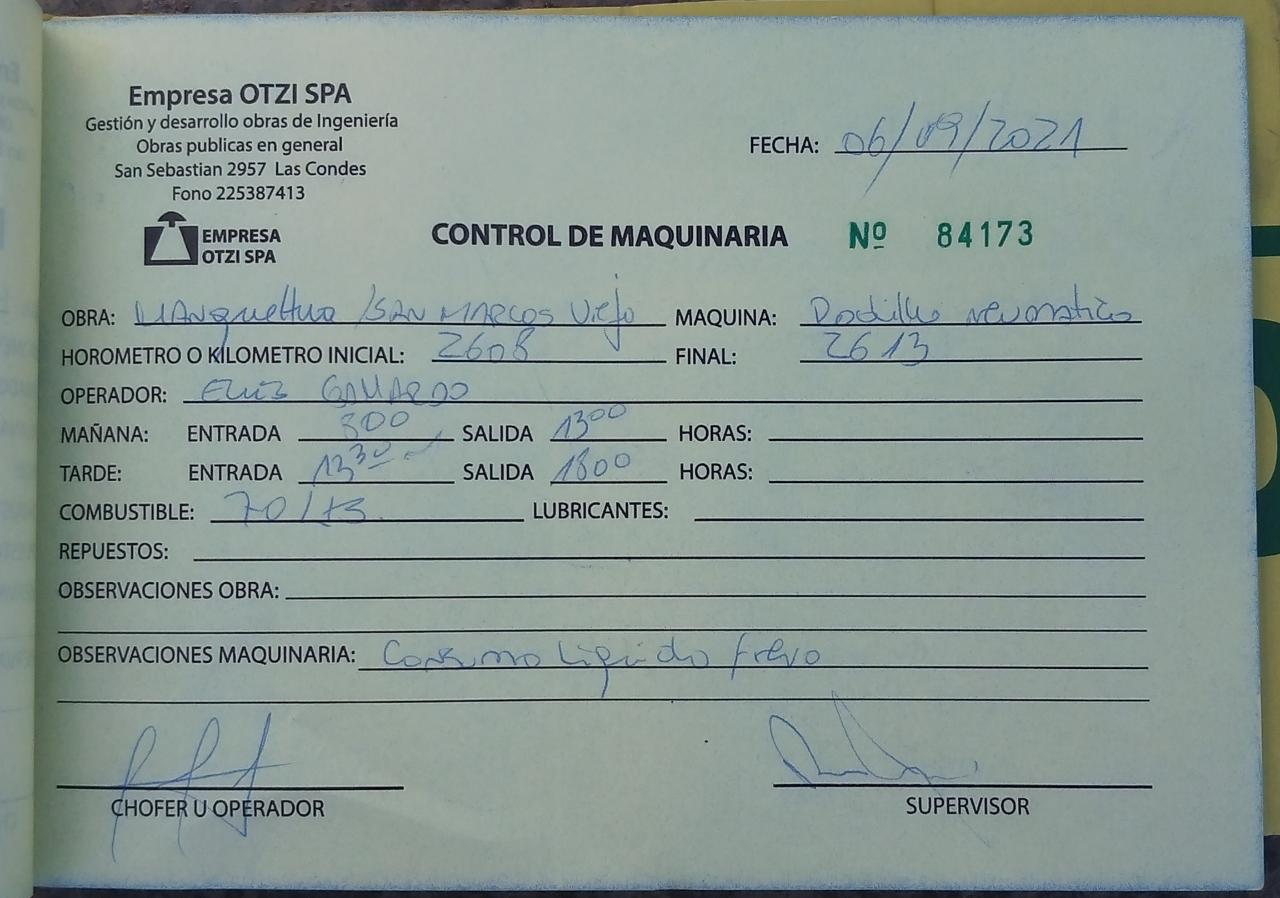 Empresa OTZI SPA
Gestión y desarrollo obras de Ingeniería
Obras publicas en general
San Sebastian 2957 Las Condes
Fono 225387413
FECHA: 06/09/2021
EMPRESA
OTZI SPA
CONTROL DE MAQUINARIA Nº 84173
OBRA: /SAN MARCOS Viejo MAQUINA: Rodillo neumatico
HOROMETRO O KILOMETRO INICIAL: 2608 FINAL: 2613
OPERADOR: GALLARDO
MAÑANA: ENTRADA 800 SALIDA 1300 HORAS:
TARDE: ENTRADA 1330 SALIDA 1800 HORAS:
COMBUSTIBLE: 70 LUBRICANTES:
REPUESTOS:
OBSERVACIONES OBRA:
OBSERVACIONES MAQUINARIA: Consumo Liquido freno
CHOFER U OPERADOR SUPERVISOR